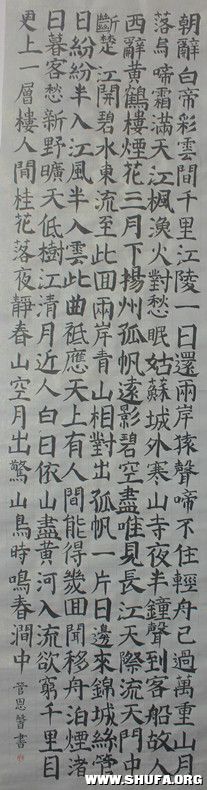 朝辭白帝彩雲間千里江陵一日還兩岸猿聲啼不住輕舟已過萬重山月
落烏啼霜滿天江楓漁火對愁眠姑蘇城外寒山寺夜半鐘聲到客船故人
西辭黃鶴樓煙花三月下揚州孤帆遠影碧空盡唯見長江天際流天門中
斷楚江開碧水東流至此囬兩岸青山相對出孤帆一片日邊來錦城絲管
日紛紛半入江風半入雲此曲祗應天上有人間能得幾囬聞移舟泊煙渚
日暮客愁新野曠天低樹江清月近人白日依山盡黃河入流欲窮千里目
更上一層樓人間桂花落夜靜春山空月出驚山鳥時鳴春澗中
管恩書
WWW.SHUFA.ORG